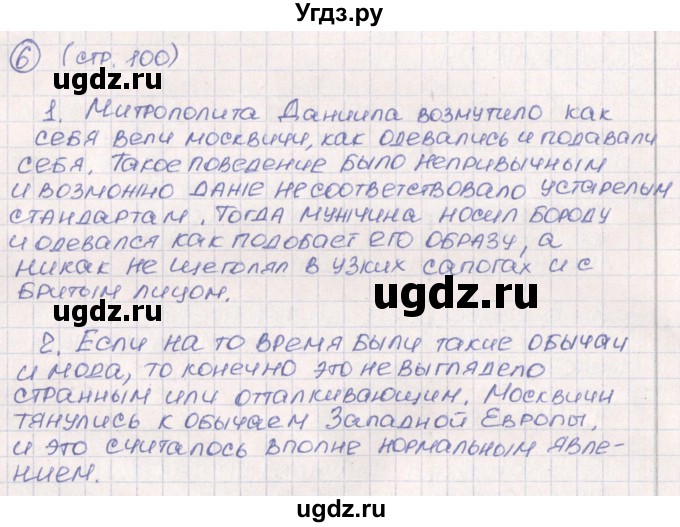 Угдз.ру
6 (стр. 100)
ugdz.ru
ugdz.ru
1. Митрополита Даниила возмутило как
себя вели москвичи, как одевались и подавали
себя. Такое поведение было непривычным
и возможно даже не соответствовало устарелым
стандартам. Тогда мужчина носил бороду
и одевался как подобает его образу, а
никак не щеголял в узких сапогах и с
бритым лицом.
ugdz.ru
ugdz.ru
2. Если на то время были такие обычаи
и мода, то конечно это не выглядело
странным или отталкивающим. Москвичи
тянулись к обычаем Западной Европы,
и это считалось вполне нормальным явле-
нием.
ugdz.ru
ugdz.ru
ugdz.ru